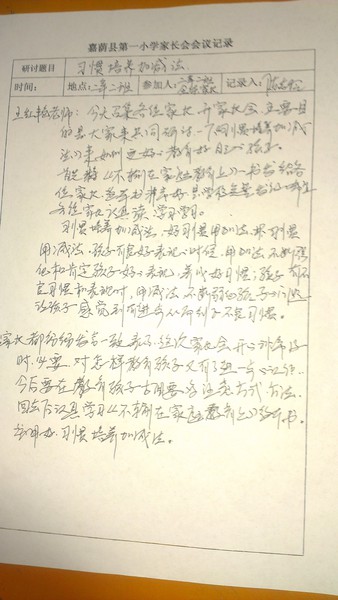 嘉荫县第一小学家长会会议记录
研讨题目 习惯培养加减法
时间: 地点:二年二班 参加人:二年二班全体家长 记录人:
老师:今天召集各位家长开家长会,主要目
的是大家来共同研讨一下习惯培养加减
法》来如何更好教育好自己孩子。
《不输在家庭教育上》一书发给各
位家长
各位家长认真读,学习学习。
习惯培养加减法,好习惯用加法,坏习惯
用减法,孩子有良好表现的时候,用加法不断强
化和肯定孩子好的表现,养成好习惯;孩子有不
良习惯和表现时,用减法,不断
让孩子感觉到有进步从而
家长都纷纷发言一致表示,这次家长会开的非常及
时,必要,对怎样教育孩子又有了进一步认识,
今后要在教育孩子方面要多注意方式方法,
回去后认真学习《不输在家庭教育上》这本书,
利用好习惯培养加减法。